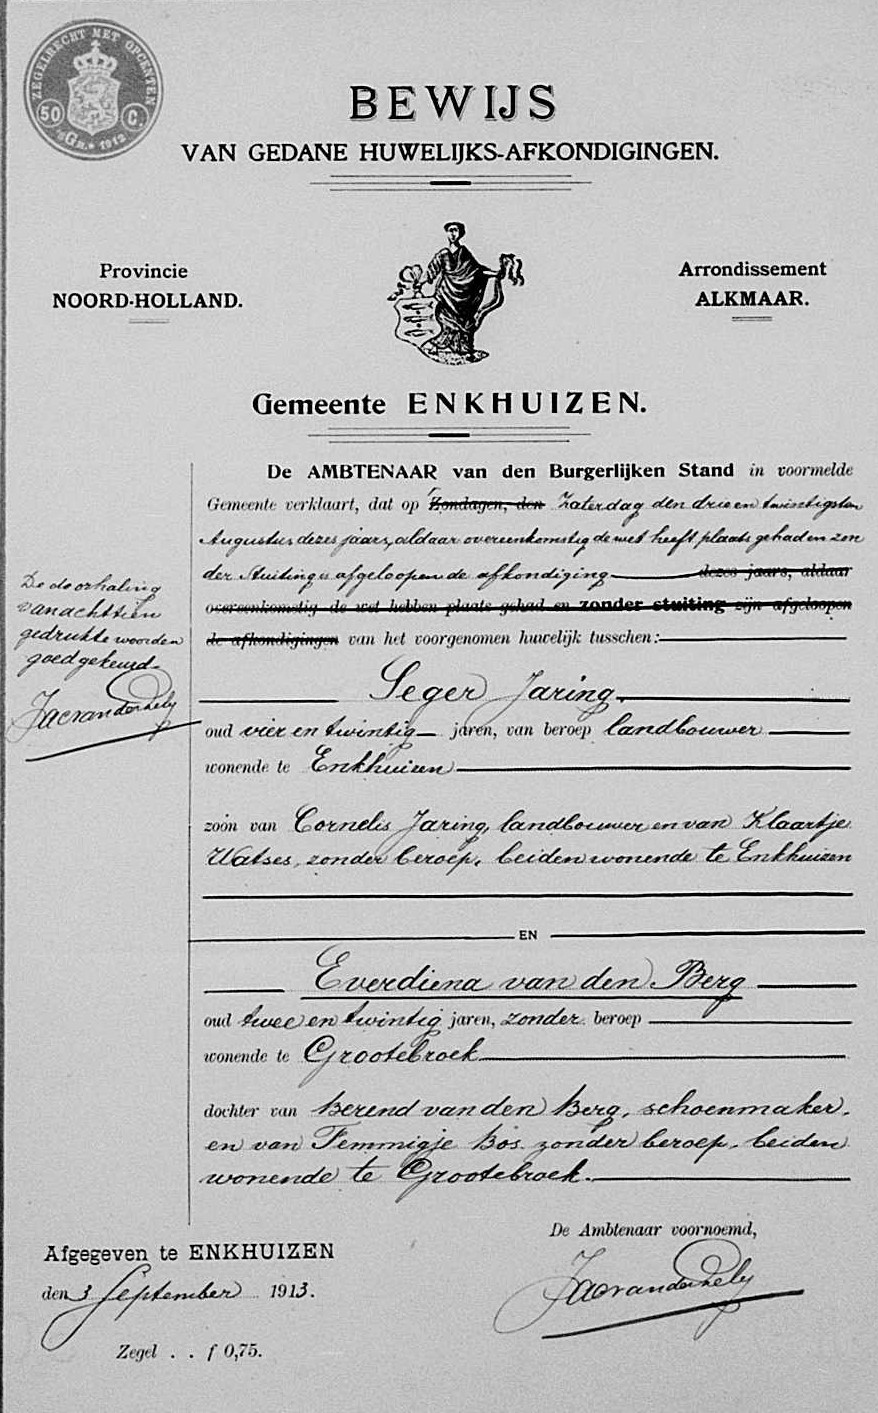 ZEGELRECHT MET OPCENTEN
50 C.
Gn. 1912
BEWIJS
VAN GEDANE HUWELIJKS-AFKONDIGINGEN.
Provincie
NOORD-HOLLAND.
Arrondissement
ALKMAAR.
Gemeente ENKHUIZEN.
De AMBTENAAR van den Burgerlijken Stand in voormelde
Gemeente verklaart, dat op Zondagen, den Zaterdag den drie en twintigsten
Augustus dezes jaars, aldaar overeenkomstig de wet heeft plaats gehad en zon
der Stuiting is afgeloopen de afkondiging dezes jaars, aldaar
overeenkomstig de wet hebben plaats gehad en zonder stuiting zijn afgeloopen
de afkondigingen van het voorgenomen huwelijk tusschen:
De doorhaling
van achttien
gedrukte woorden
goedgekeurd.
Seger Jaring,
oud vier en twintig jaren, van beroep landbouwer
wonende te Enkhuizen
zoon van Cornelis Jaring, landbouwer en van Klaartje
Watses, zonder beroep, beiden wonende te Enkhuizen
EN
Everdiena van den Berg
oud twee en twintig jaren, zonder beroep
wonende te Grootebroek
dochter van Berend van den Berg, schoenmaker,
en van Femmigje Bos zonder beroep, beiden
wonende te Grootebroek.
De Ambtenaar voornoemd,
Afgegeven te ENKHUIZEN
den 3 September 1913.
Zegel . . f 0,75.